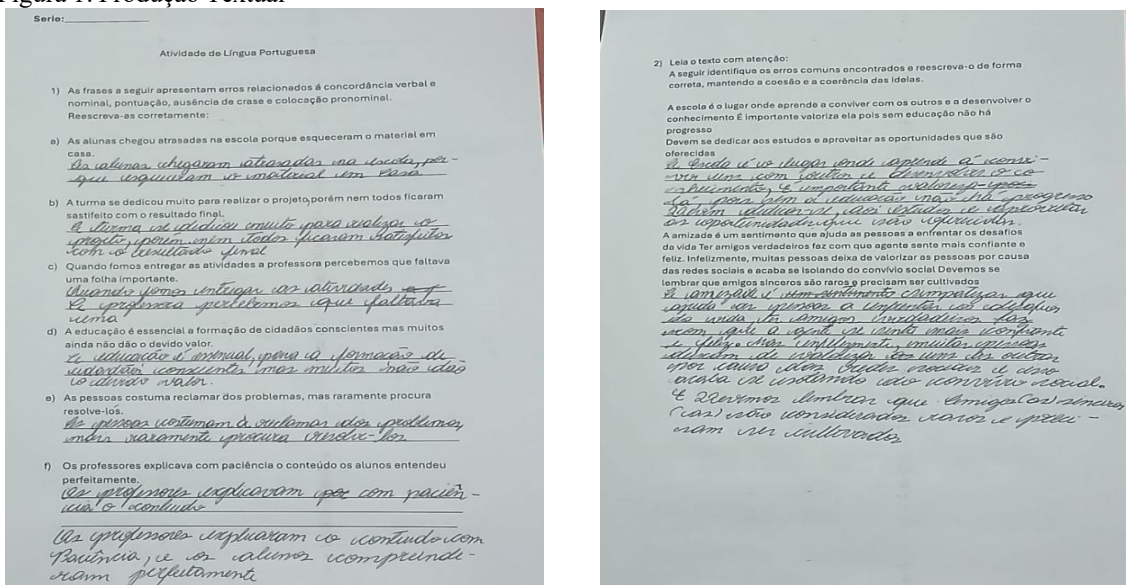 Figura 1. Produção Textual
Serie:
Atividade de Língua Portuguesa
1) As frases a seguir apresentam erros relacionados á concordância verbal e
nominal, pontuação, ausência de crase e colocação pronominal.
Reescreva-as corretamente:
a) As alunas chegou atrasadas na escola porque esqueceram o material em
casa.
As alunas chegaram atrasadas na escola, por-
que esqueceram o material em casa
b) A turma se dedicou muito para realizar o projeto,porém nem todos ficaram
sastifeito com o resultado final.
A turma se dedicou muito para realizar o
projeto, porém nem todos ficaram satisfeitos
com o resultado final
c) Quando fomos entregar as atividades a professora percebemos que faltava
uma folha importante.
Quando fomos entregar as atividades
a professora percebemos que faltava
uma
d) A educação é essencial a formação de cidadãos conscientes mas muitos
ainda não dão o devido valor.
A educação é essencial, para a formação de
cidadãos conscientes mas muitos não dão
o devido valor.
e) As pessoas costuma reclamar dos problemas, mas raramente procura
resolve-lós.
As pessoas costumam á reclamar dos problemas,
mais raramente procura resolve-los
f) Os professores explicava com paciência o conteúdo os alunos entendeu
perfeitamente.
Os professores explicavam por com paciên-
cia o conteudo
Os professores explicaram o conteudo com
Paciência, e os alunos compreende-
ram perfeitamente
2) Leia o texto com atenção:
A seguir identifique os erros comuns encontrados e reescreva-o de forma
correta, mantendo a coesão e a coerência das ideias.
A escola é o lugar onde aprende a conviver com os outros e a desenvolver o
conhecimento É importante valoriza ela pois sem educação não há
progresso
Devem se dedicar aos estudos e aproveitar as oportunidades que são
oferecidas
A escola é o lugar onde aprende a convi-
ver uns com outros e desenvolver o co-
nhecimento, é importante
pois sem a educação não há progresso
Devem dedicar-se, aos estudos e aproveitar
as oportunidades que são oferecidas.
A amizade é um sentimento que ajuda as pessoas a enfrentar os desafios
da vida Ter amigos verdadeiros faz com que agente sente mais confiante e
feliz. Infelizmente, muitas pessoas deixa de valorizar as pessoas por causa
das redes sociais e acaba se isolando do convívio social Devemos se
lembrar que amigos sinceros são raros e precisam ser cultivados
A amizade é um sentimento que
ajuda as pessoas a enfrentar os desafios
da vida, ter amigos verdadeiros faz
com que a gente se sinta mais confiante
e feliz. Mas infelizmente, muitas pessoas
deixam de valorizar uns dos outros
por causa das redes sociais e isso
acaba se isolando do convívio social.
E Devemos lembrar que Amigos(as) sinceros
(as) são considerados raros e preci-
sam ser cultivados